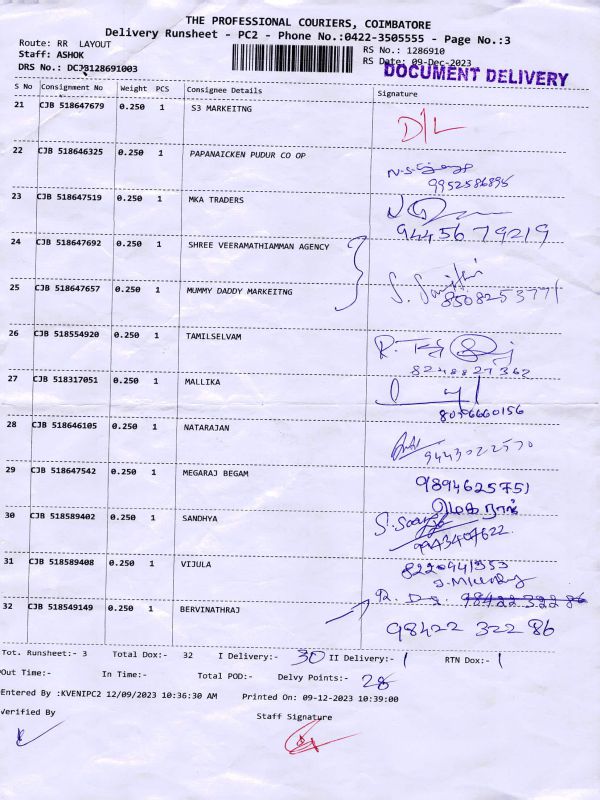 THE PROFESSIONAL COURIERS, COIMBATORE
Delivery Runsheet - PC2 - Phone No.:0422-3505555 - Page No.:3
Route: RR LAYOUT RS No.: 1286910
Staff: ASHOK RS Date: 09-Dec-2023
DRS No.: DCJB128691003 DOCUMENT DELIVERY
S No Consignment No Weight PCS Consignee Details Signature
21 CJB 518647679 0.250 1 S3 MARKEITNG D/L
22 CJB 518646325 0.250 1 PAPANAICKEN PUDUR CO OP
9952586895
23 CJB 518647519 0.250 1 MKA TRADERS
9445679219
24 CJB 518647692 0.250 1 SHREE VEERAMATHIAMMAN AGENCY
25 CJB 518647657 0.250 1 MUMMY DADDY MARKEITNG
8508253771
26 CJB 518554920 0.250 1 TAMILSELVAM
8248827362
27 CJB 518317051 0.250 1 MALLIKA
28 CJB 518646105 0.250 1 NATARAJAN
9443022570
29 CJB 518647542 0.250 1 MEGARAJ BEGAM 9894625751
30 CJB 518589402 0.250 1 SANDHYA
31 CJB 518589408 0.250 1 VIJULA
32 CJB 518549149 0.250 1 BERVINATHRAJ
98422 322 86
Tot. Runsheet:- 3 Total Dox:- 32 I Delivery:- 30 II Delivery:- 1 RTN Dox:- 1
Out Time:- In Time:- Total POD:- Delvy Points:- 28
Entered By :KVENIPC2 12/09/2023 10:36:30 AM Printed On: 09-12-2023 10:39:00
Verified By Staff Signature